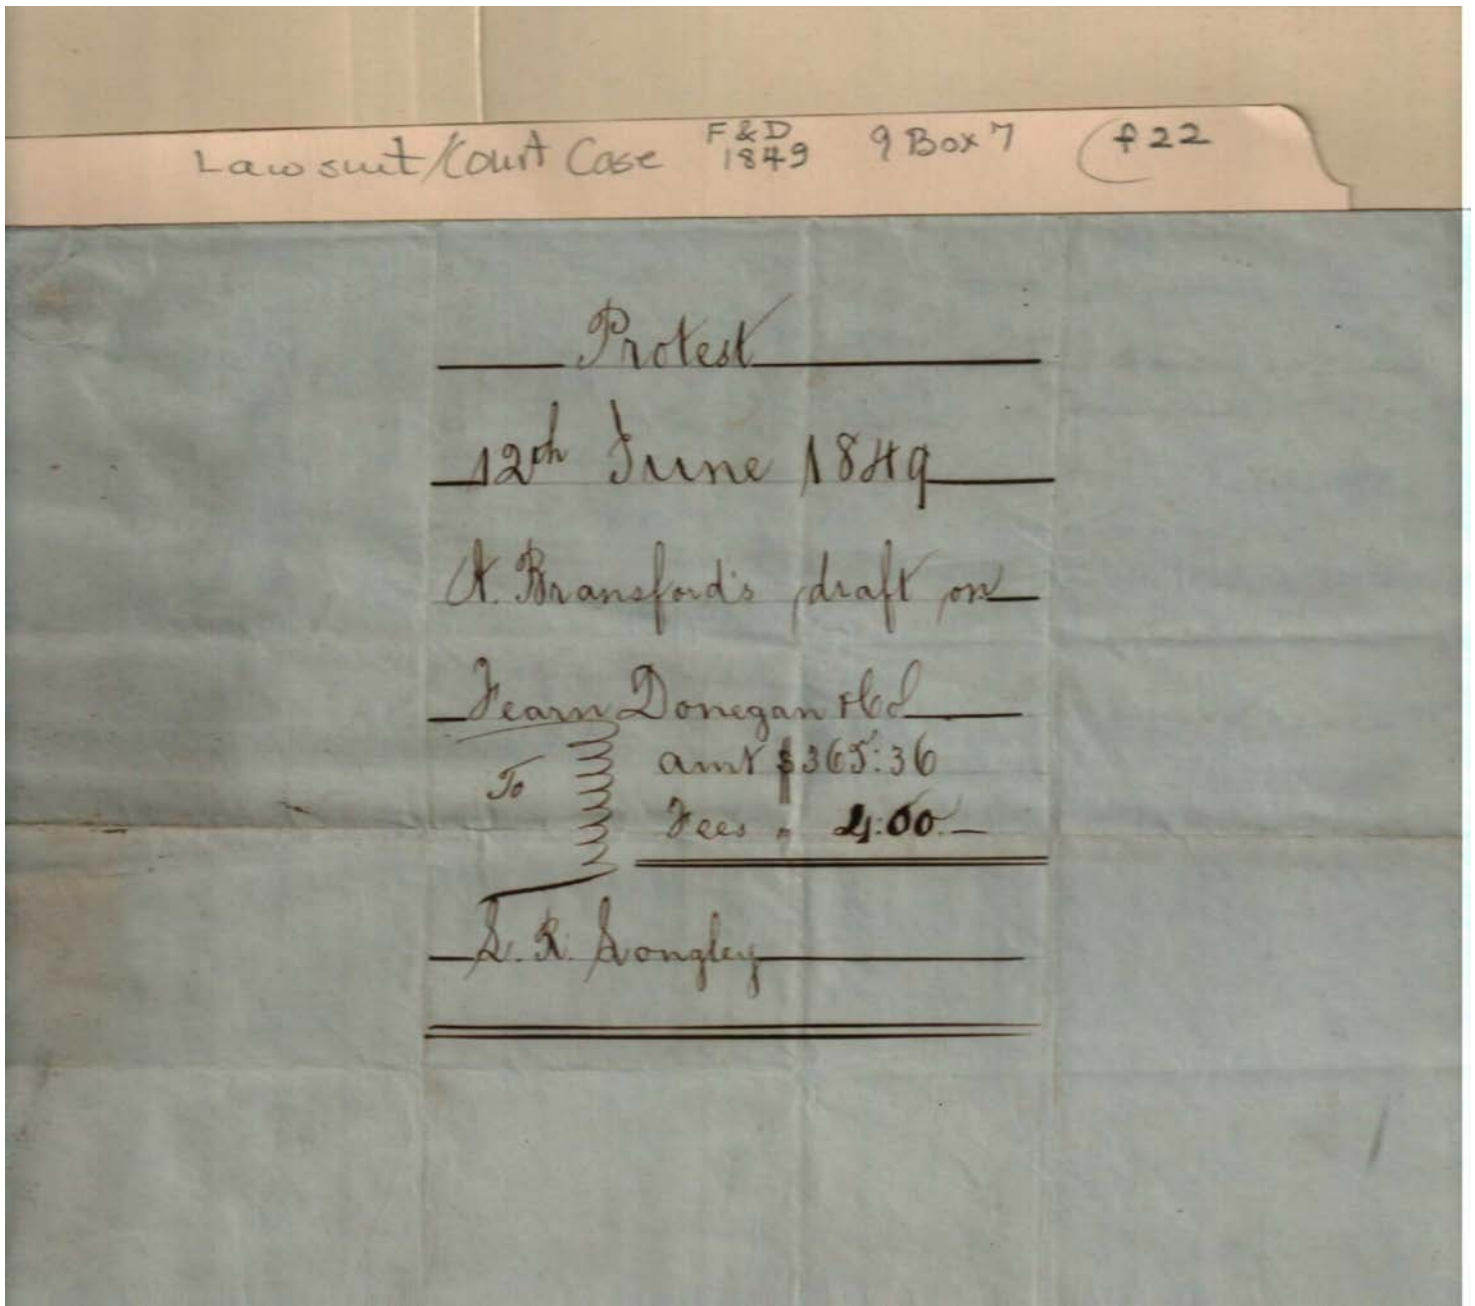 Lawsuit/Court Case F & D 1849 9 Box 7 f22
Protest
12th June 1849
A. Bransford's draft on
Fearn Donegan & Co
amt $365:36
To
Fees " 4.00
S. R. Longley